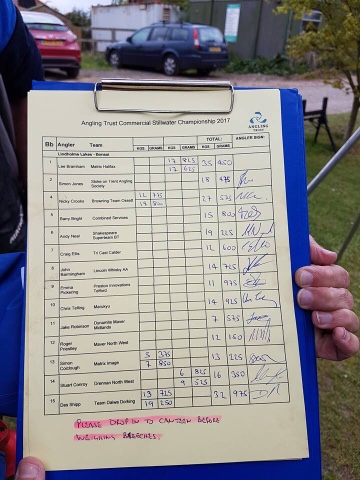 Angling Trust Commercial Stillwater Championship 2017
ANGLING TRUST
Bb Angler Team KGS GRAMS KGS GRAMS TOTAL: KGS GRAMS ANGLER SIGN:
Lindholme Lakes - Bonsai
1 Lee Bramham Matrix Halifax 17 825 35 450
17 625
2 Simon Jones Stoke on Trent Angling Society 18 475
4 Nicky Crooks Browning Team Ossett 12 775 27 575
14 800
5 Barry Bright Combined Services 15 800
6 Andy Neal Shakespeare Superteam BT 19 225
7 Craig Ellis Tri Cast Calder 12 600
8 John Barmingham Lincoln Whisby AA 14 725
9 Emma Pickering Preston Innovations Telford 11 975
10 Chris Telling Marukyu 14 925
11 Jake Robinson Dynamite Maver Midlands 7 575
12 Roger Priestley Maver North West 12 150
13 Simon Colclough Matrix Image 5 375 13 225
7 850
14 Stuart Conroy Drennan North West 6 825 16 350
9 525
15 Des Shipp Team Daiwa Dorking 13 725 32 975
19 250
PLEASE DROP IN TO CANTEEN BEFORE
WEIGHING BREECHES.